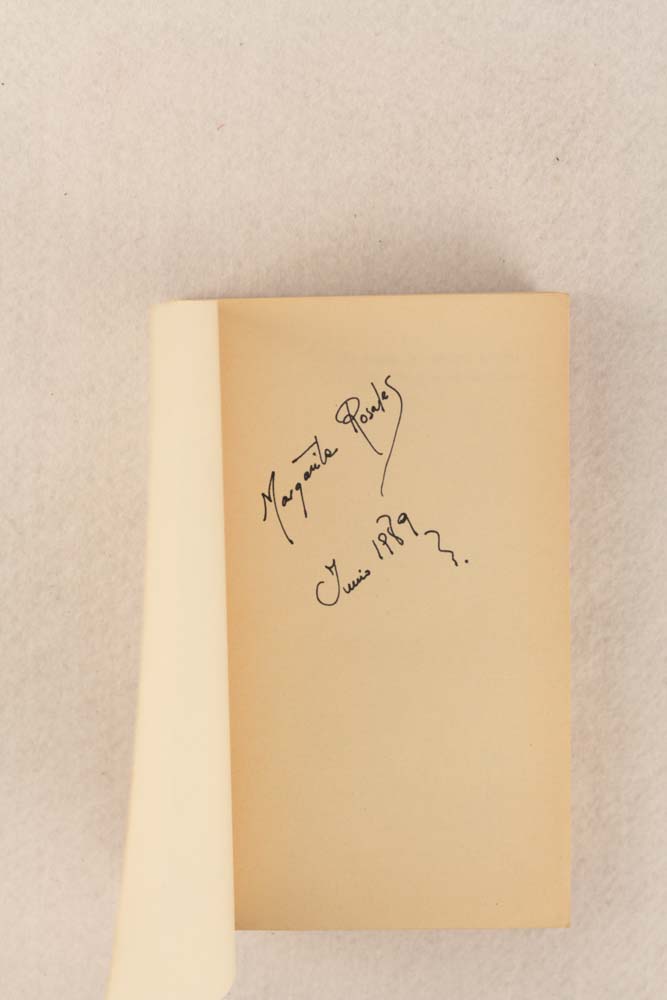 Margarita Rosales
Junio 1989